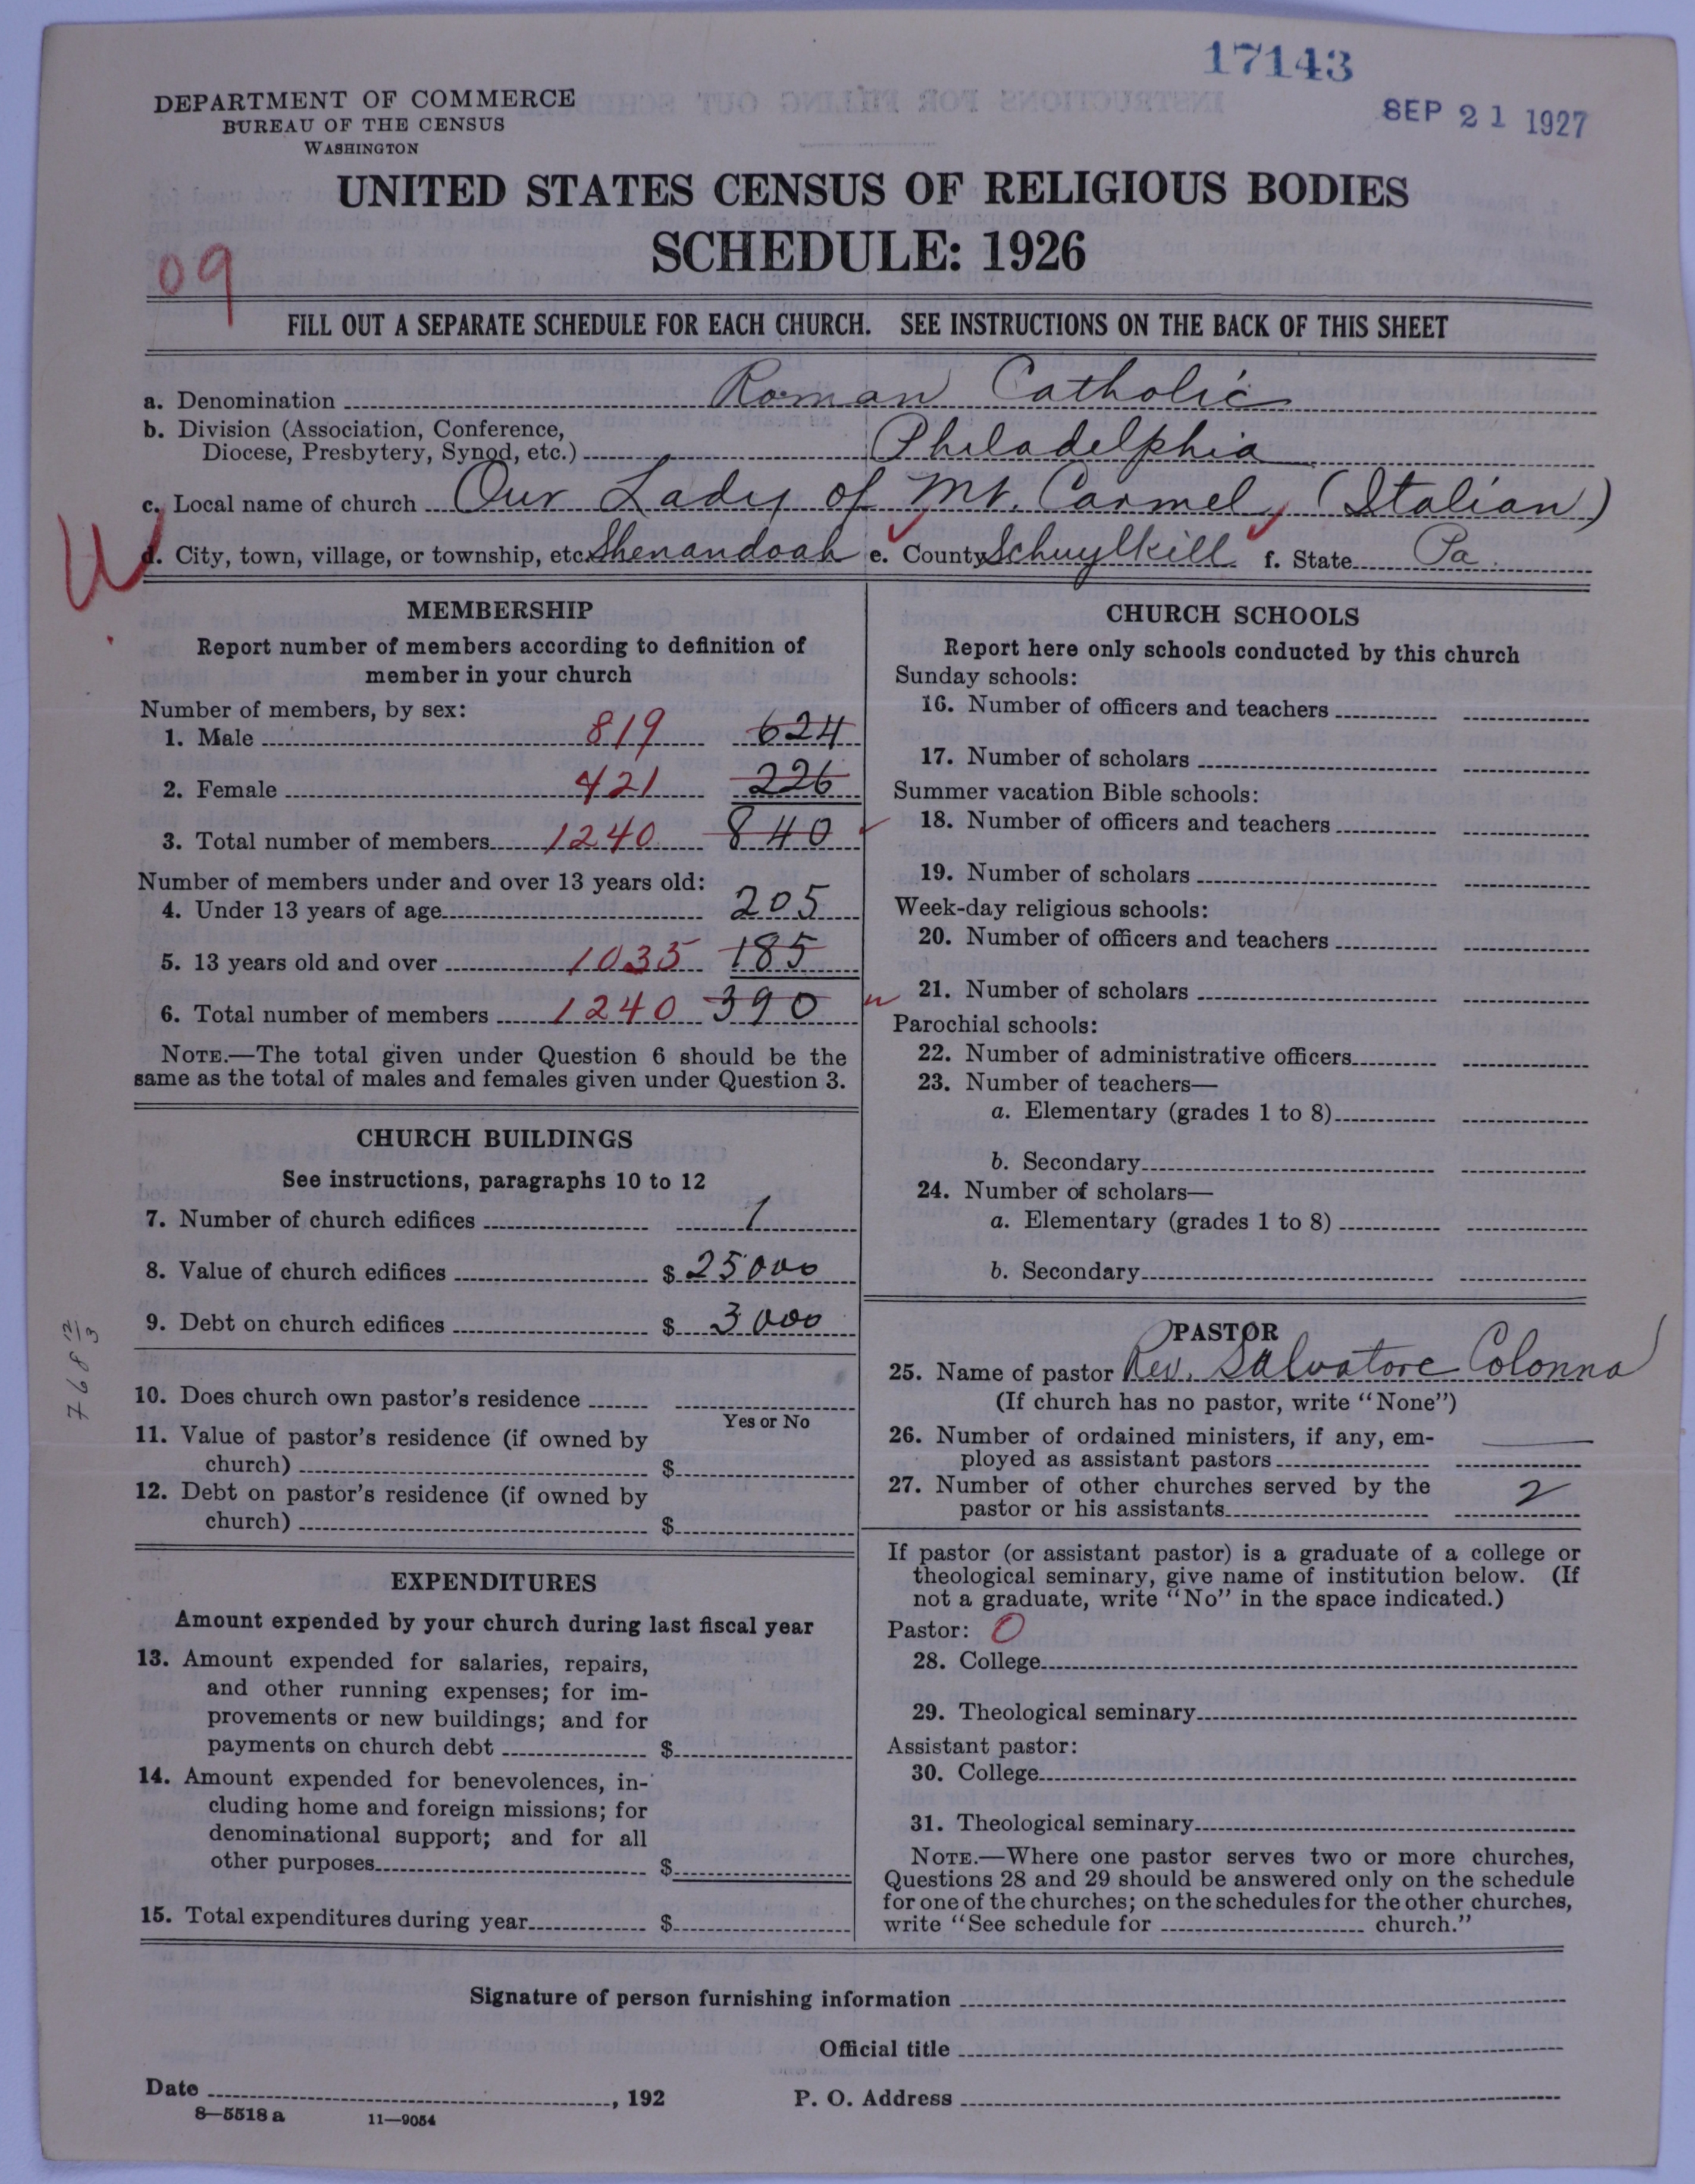 17143
SEP 21 1927
DEPARTMENT OF COMMERCE
BUREAU OF THE CENSUS
WASHINGTON
UNITED STATES CENSUS OF RELIGIOUS BODIES
SCHEDULE: 1926
09
FILL OUT A SEPARATE SCHEDULE FOR EACH CHURCH. SEE INSTRUCTIONS ON THE BACK OF THIS SHEET
a. Denomination Roman Catholic
b. Division (Association, Conference,
Diocese, Presbytery, Synod, etc.) Philadelphia
c. Local name of church Our Lady of Mt. Carmel, (Italian)
d. City, town, village, or township, etc. Shenandoah e. County Schuylkill f. State Pa.
U
MEMBERSHIP
Report number of members according to definition of
member in your church
Number of members, by sex:
1. Male 819 624
2. Female 421 226
3. Total number of members 1240 840
Number of members under and over 13 years old:
4. Under 13 years of age 205
5. 13 years old and over 1035 185
6. Total number of members 1240 390
NOTE.—The total given under Question 6 should be the
same as the total of males and females given under Question 3.
CHURCH BUILDINGS
See instructions, paragraphs 10 to 12
7. Number of church edifices 1
8. Value of church edifices $ 25000
9. Debt on church edifices $ 3000
10. Does church own pastor's residence
Yes or No
11. Value of pastor's residence (if owned by
church) $
12. Debt on pastor's residence (if owned by
church) $
EXPENDITURES
Amount expended by your church during last fiscal year
13. Amount expended for salaries, repairs,
and other running expenses; for im-
provements or new buildings; and for
payments on church debt $
14. Amount expended for benevolences, in-
cluding home and foreign missions; for
denominational support; and for all
other purposes $
15. Total expenditures during year $
CHURCH SCHOOLS
Report here only schools conducted by this church
Sunday schools:
16. Number of officers and teachers
17. Number of scholars
Summer vacation Bible schools:
18. Number of officers and teachers
19. Number of scholars
Week-day religious schools:
20. Number of officers and teachers
21. Number of scholars
Parochial schools:
22. Number of administrative officers
23. Number of teachers—
a. Elementary (grades 1 to 8)
b. Secondary
24. Number of scholars—
a. Elementary (grades 1 to 8)
b. Secondary
PASTOR
25. Name of pastor Rev. Salvatore Colonna
(If church has no pastor, write "None")
26. Number of ordained ministers, if any, em-
ployed as assistant pastors
27. Number of other churches served by the
pastor or his assistants 2
If pastor (or assistant pastor) is a graduate of a college or
theological seminary, give name of institution below. (If
not a graduate, write "No" in the space indicated.)
Pastor: 0
28. College
29. Theological seminary
Assistant pastor:
30. College
31. Theological seminary
NOTE.—Where one pastor serves two or more churches,
Questions 28 and 29 should be answered only on the schedule
for one of the churches; on the schedules for the other churches,
write "See schedule for church."
Signature of person furnishing information
Official title
Date , 192 P. O. Address
8—5518 a 11—9054